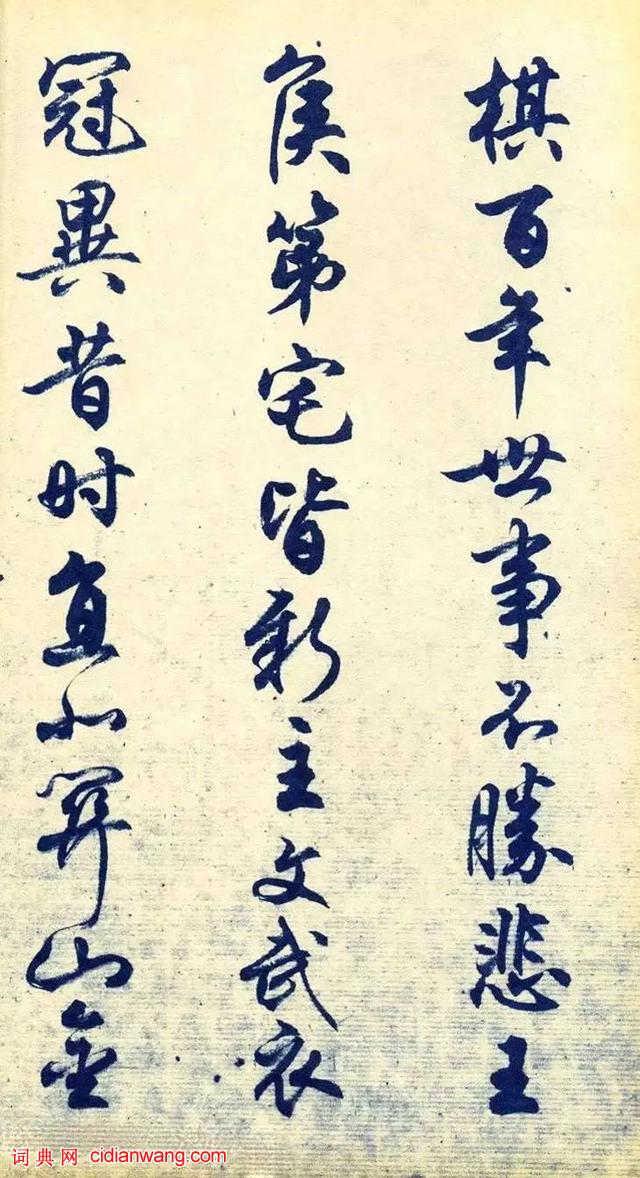 棋百年世事不勝悲王
侯第宅皆新主文武衣
冠異昔时直北関山金
词典网 cidianwang.com